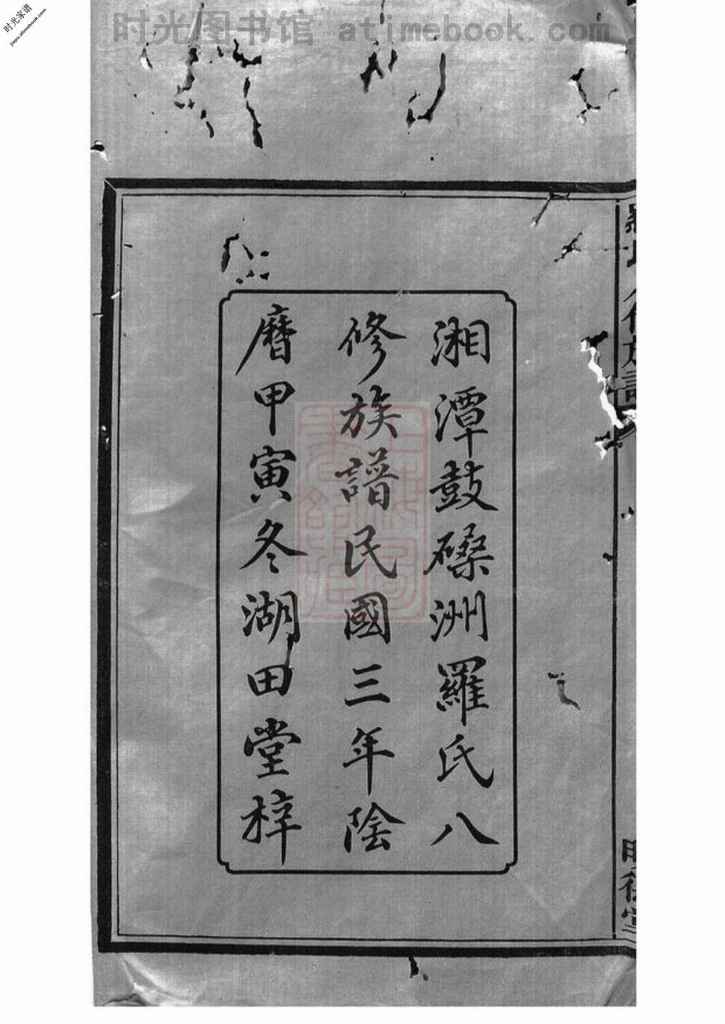 时光图书馆 atimebook.com
时光家谱
jiapu.atimebook.com
湘潭鼓磉洲羅氏八
修族譜民國三年陰
曆甲寅冬湖田堂梓